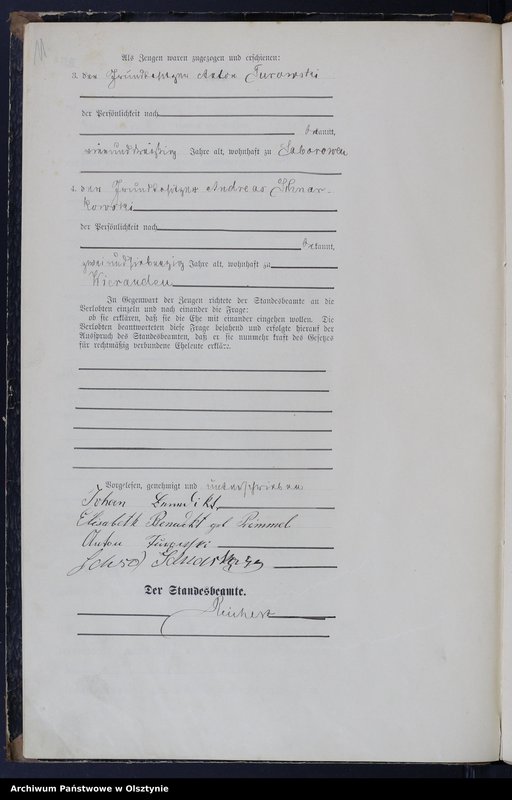 Als Zeugen waren zugezogen und erschienen:
3. der Grundbesitzer Anton Turowski
der Persönlichkeit nach
bekannt,
vierunddreißig Jahre alt, wohnhaft zu
4. der Grundbesitzer Andreas
kowski
der Persönlichkeit nach
bekannt,
zweiundsiebenzig Jahre alt, wohnhaft zu
Wieranden
In Gegenwart der Zeugen richtete der Standesbeamte an die
Verlobten einzeln und nach einander die Frage:
ob sie erklären, daß sie die Ehe mit einander eingehen wollen. Die
Verlobten beantworteten diese Frage bejahend und erfolgte hierauf der
Ausspruch des Standesbeamten, daß er sie nunmehr kraft des Gesetzes
für rechtmäßig verbundene Eheleute erkläre.
Vorgelesen, genehmigt und unterschrieben
Johan Benedikt
Elisabeth Benedikt geb
Anton
Der Standesbeamte.
Archiwum Państwowe w Olsztynie